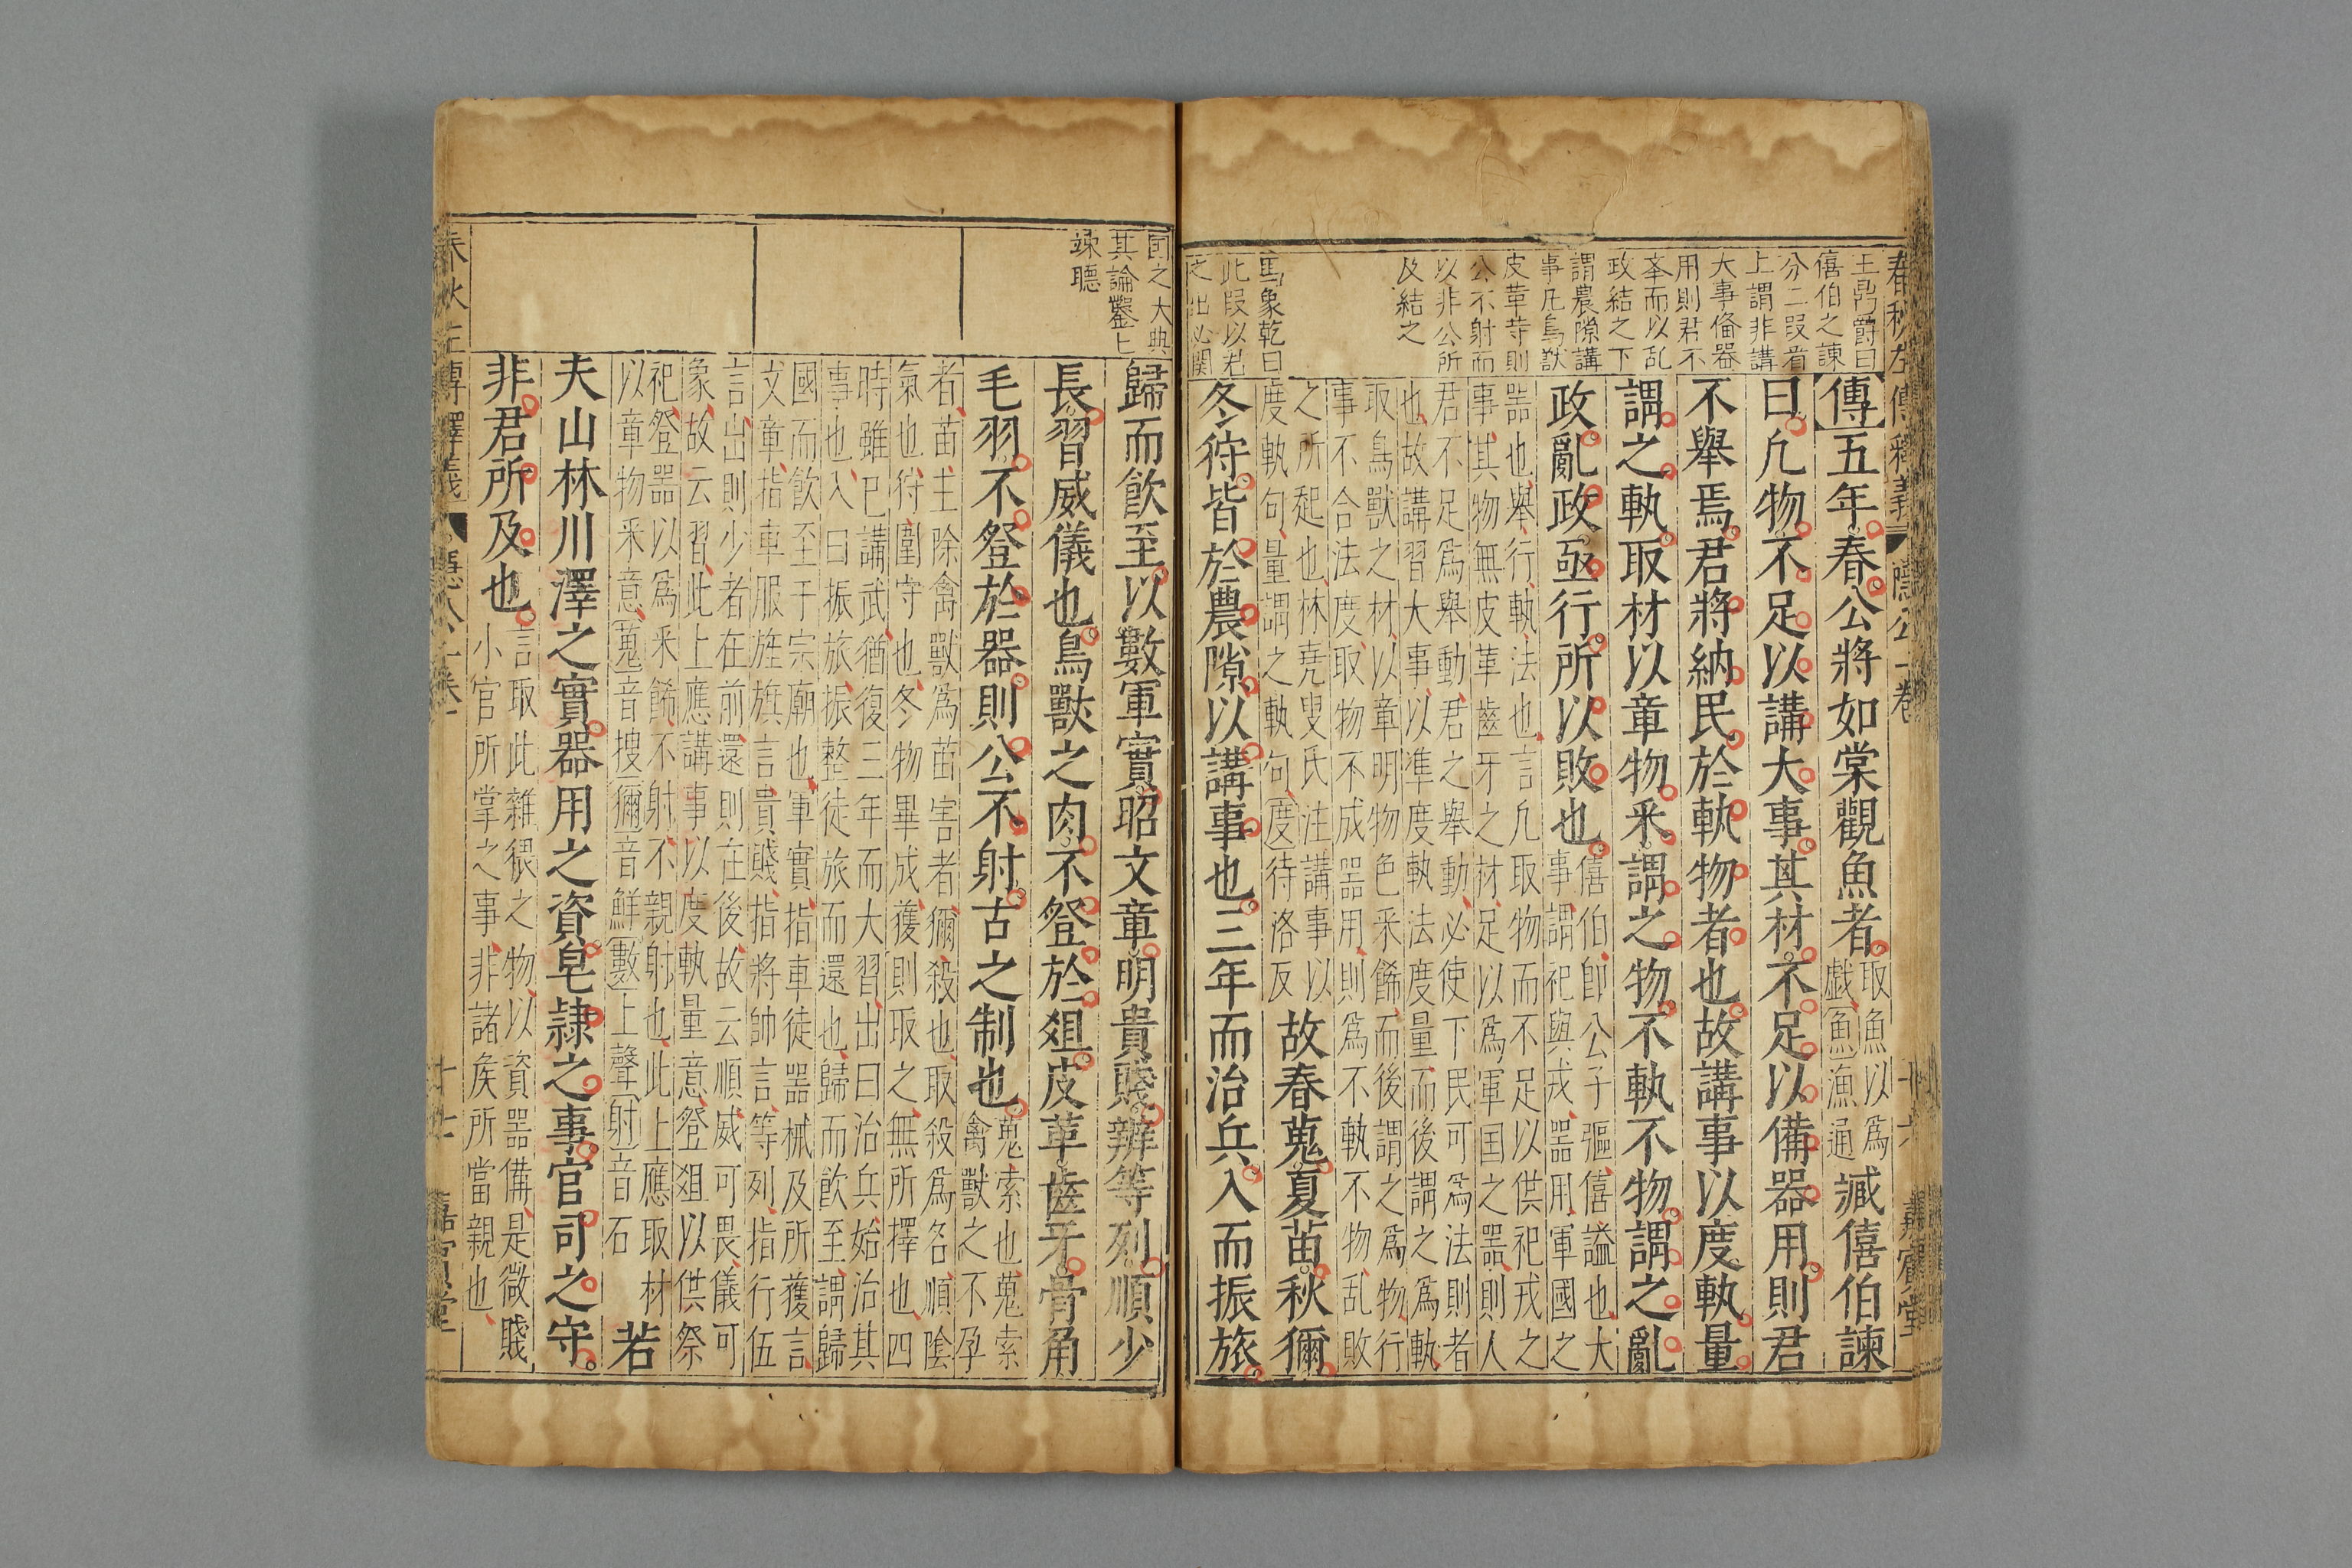 春秋左傳釋義 隱公一卷 十六 嘉賓堂
王鳳爵曰
僖伯之諫
分二段首
上謂非講
大事俻器
用則君不
峯而以乱
政結之下
謂農隙講
事凡鳥獣
皮革寺則
公不射而
以非公所
及結之
象乾曰
此段以君
之出必関
傳五年春公將如棠觀魚者取魚以爲戯魚漁通臧僖伯諫
曰凢物不足以講大事其材不足以備器用則君
不舉焉君將納民於軌物者也故講事以度軌量
謂之軌取材以章物采謂之物不軌不物謂之亂
政亂政亟行所以敗也僖伯即公子彄僖謚也大
事謂祀與戎噐用軍國之
噐也舉行軌法也言凢取物而不足以供祀戎之
事其物無皮革齒牙之材足以爲軍囯之噐則人
君不足爲舉動君之舉動必使下民可爲法則者
也故講習大事以準度軌法度量而後謂之爲軌
取鳥獸之材以章明物色采餙而後謂之爲物行
事不合法度取物不成噐用則爲不軌不物乱敗
之所起也林堯叟氏注講事以
度軌句量謂之軌句度待洛反故春蒐夏苗秋獮
冬狩皆於農隙以講事也三年而治兵入而振旅
囯之大典
其論鑿匕
竦聽
歸而飲至以數軍實昭文章明貴賤辨等列順少
長習威儀也鳥獸之肉不登於俎皮革齒牙骨角
毛羽不登於器則公不射古之制也蒐索也蒐索
禽獸之不孕
者苗主除禽獸爲苗害者獮殺也取殺爲名順隂
氣也狩圍守也冬物畢成獲則取之無所擇也四
時雖已講武猶復三年而大習出曰治兵始治其
事也入曰振旅振整徒旅而還也歸而飲至謂歸
國而飲至于宗廟也軍實指車徒噐械及所獲言
文章指車服旌旗言貴賤指將帥言等列指行伍
言出則少者在前還則在後故云順威可畏儀可
象故云習此上應講事以度軌量意登俎以供祭
祀登噐以爲采餙不射不親射也此上應取材
以章物采意蒐音搜獮音鮮數上聲射音石若
夫山林川澤之實器用之資皂隷之事官司之守
非君所及也言取此雜猥之物以資噐備是微賤
小官所掌之事非諸矦所當親也
春秋左傳釋義 隱公一卷 十七 嘉賓堂